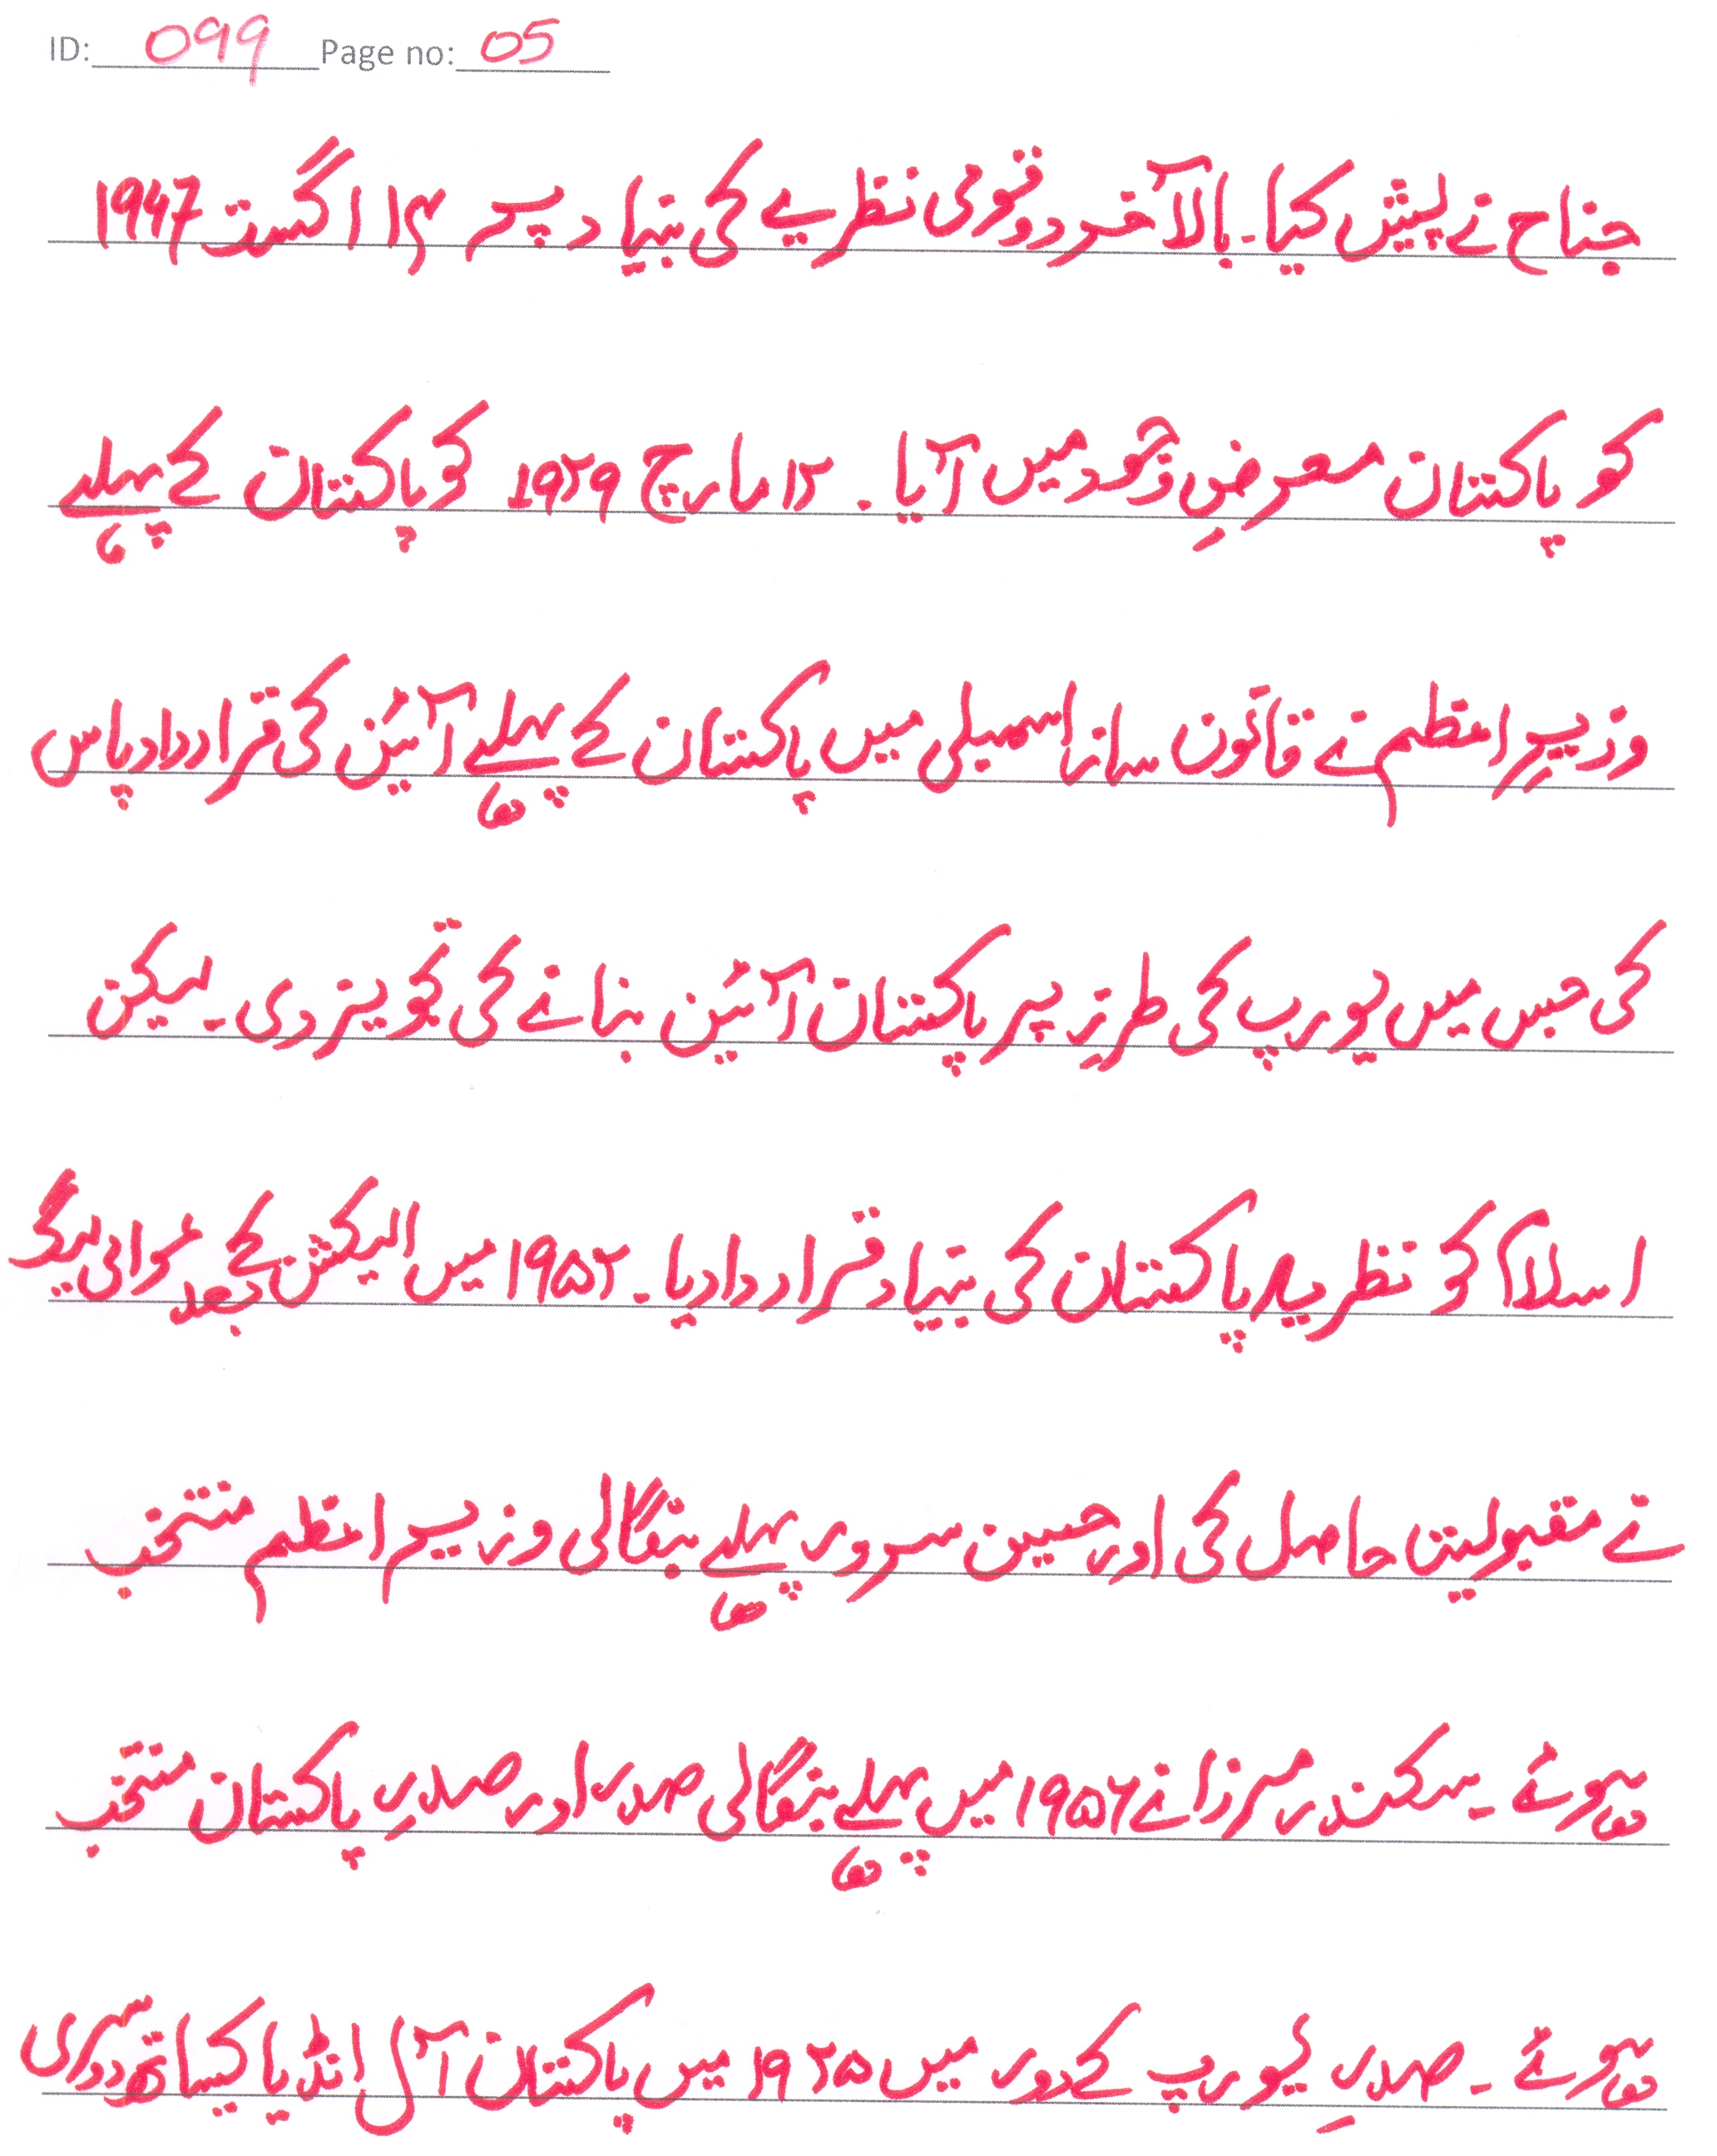 ID: 099 Page no: 05
جناح نے پیش کیا۔ بالآخر دو قومی نظریے کی بنیاد پر ۱۴ اگست 1947
کو پاکستان معرضِ وجود میں آیا۔ ۱۲ مارچ ۱۹۴۹ کو پاکستان کے پہلے
وزیرِ اعظم نے قانون ساز اسمبلی میں پاکستان کے پہلے آئین کی قرارداد پاس
کی جس میں یورپ کی طرز پر پاکستان آئین بنانے کی تجویز دی۔ لیکن
اسلام کو نظریہ پاکستان کی بنیاد قرار دادیا۔ ۱۹۵۴ میں الیکشن کے بعد عوامی لیگ
نے مقبولیت حاصل کی اور حسین سرور پہلے بنگالی وزیر اعظم منتخب
ہوئے۔ سکندر مرزا نے ۱۹۵۶ میں پہلے بنگالی صدر اور صدرِ پاکستان منتخب
ہوئے۔ صدرِ یورپ کے دور میں ۱۹۴۵ میں پاکستان آل انڈیا کیساتھ دوسری